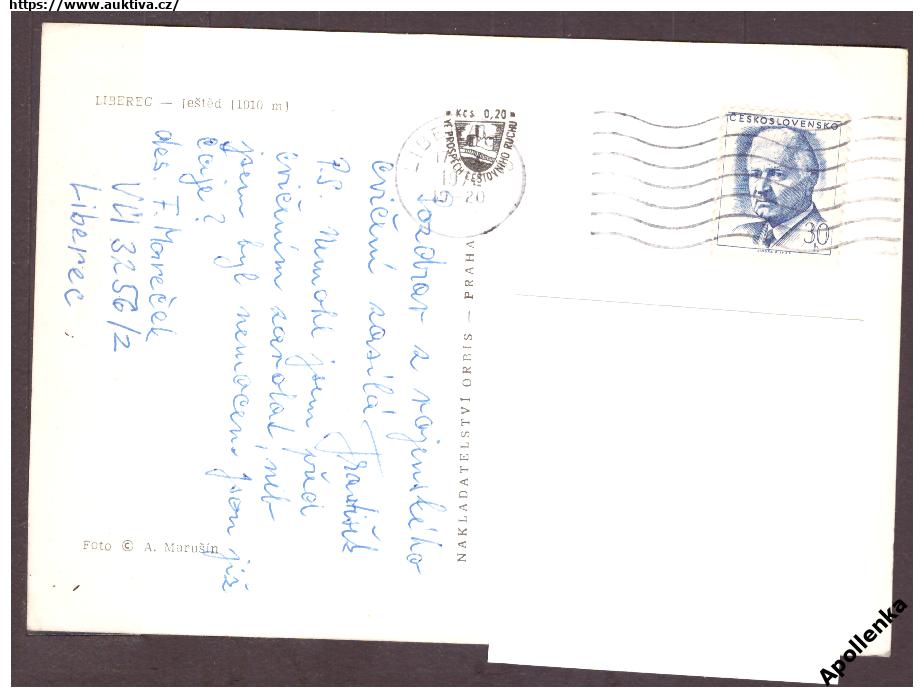 https://www.auktiva.cz/
LIBEREC — Ještěd (1010 m)
Kčs 0,20
VE PROSPĚCH CESTOVNÍHO RUCHU
20
ČESKOSLOVENSKO
30
h
Pozdrav z vojenského
cvičení zasílá
František
P.S. Nemohl jsem před
cvičením zavolat, neb
jsem byl nemocen. Jsou již
des. F.
VÚ 3256/2
Liberec
NAKLADATELSTVÍ ORBIS — PRAHA
Foto © A. Marušín
Apollenka